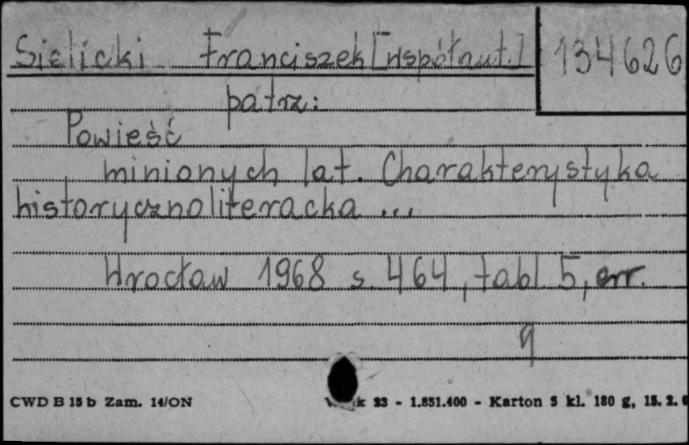 Sielicki Franciszek [współaut.] 134626
patrz:
Powieść
minionych lat. Charakterystyka
historycznoliteracka ...
Wrocław 1968 s. 464, tabl. 5, err.
9
CWD B 15 b Zam. 14/ON k 23 - 1.851.400 - Karton 5 kl. 180 g, 15. 2. 6